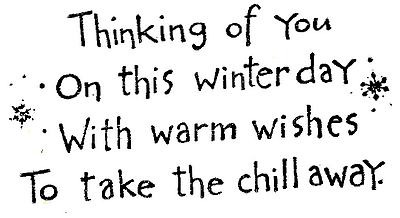 Thinking of You
On this winter day
With warm wishes
To take the chill away.